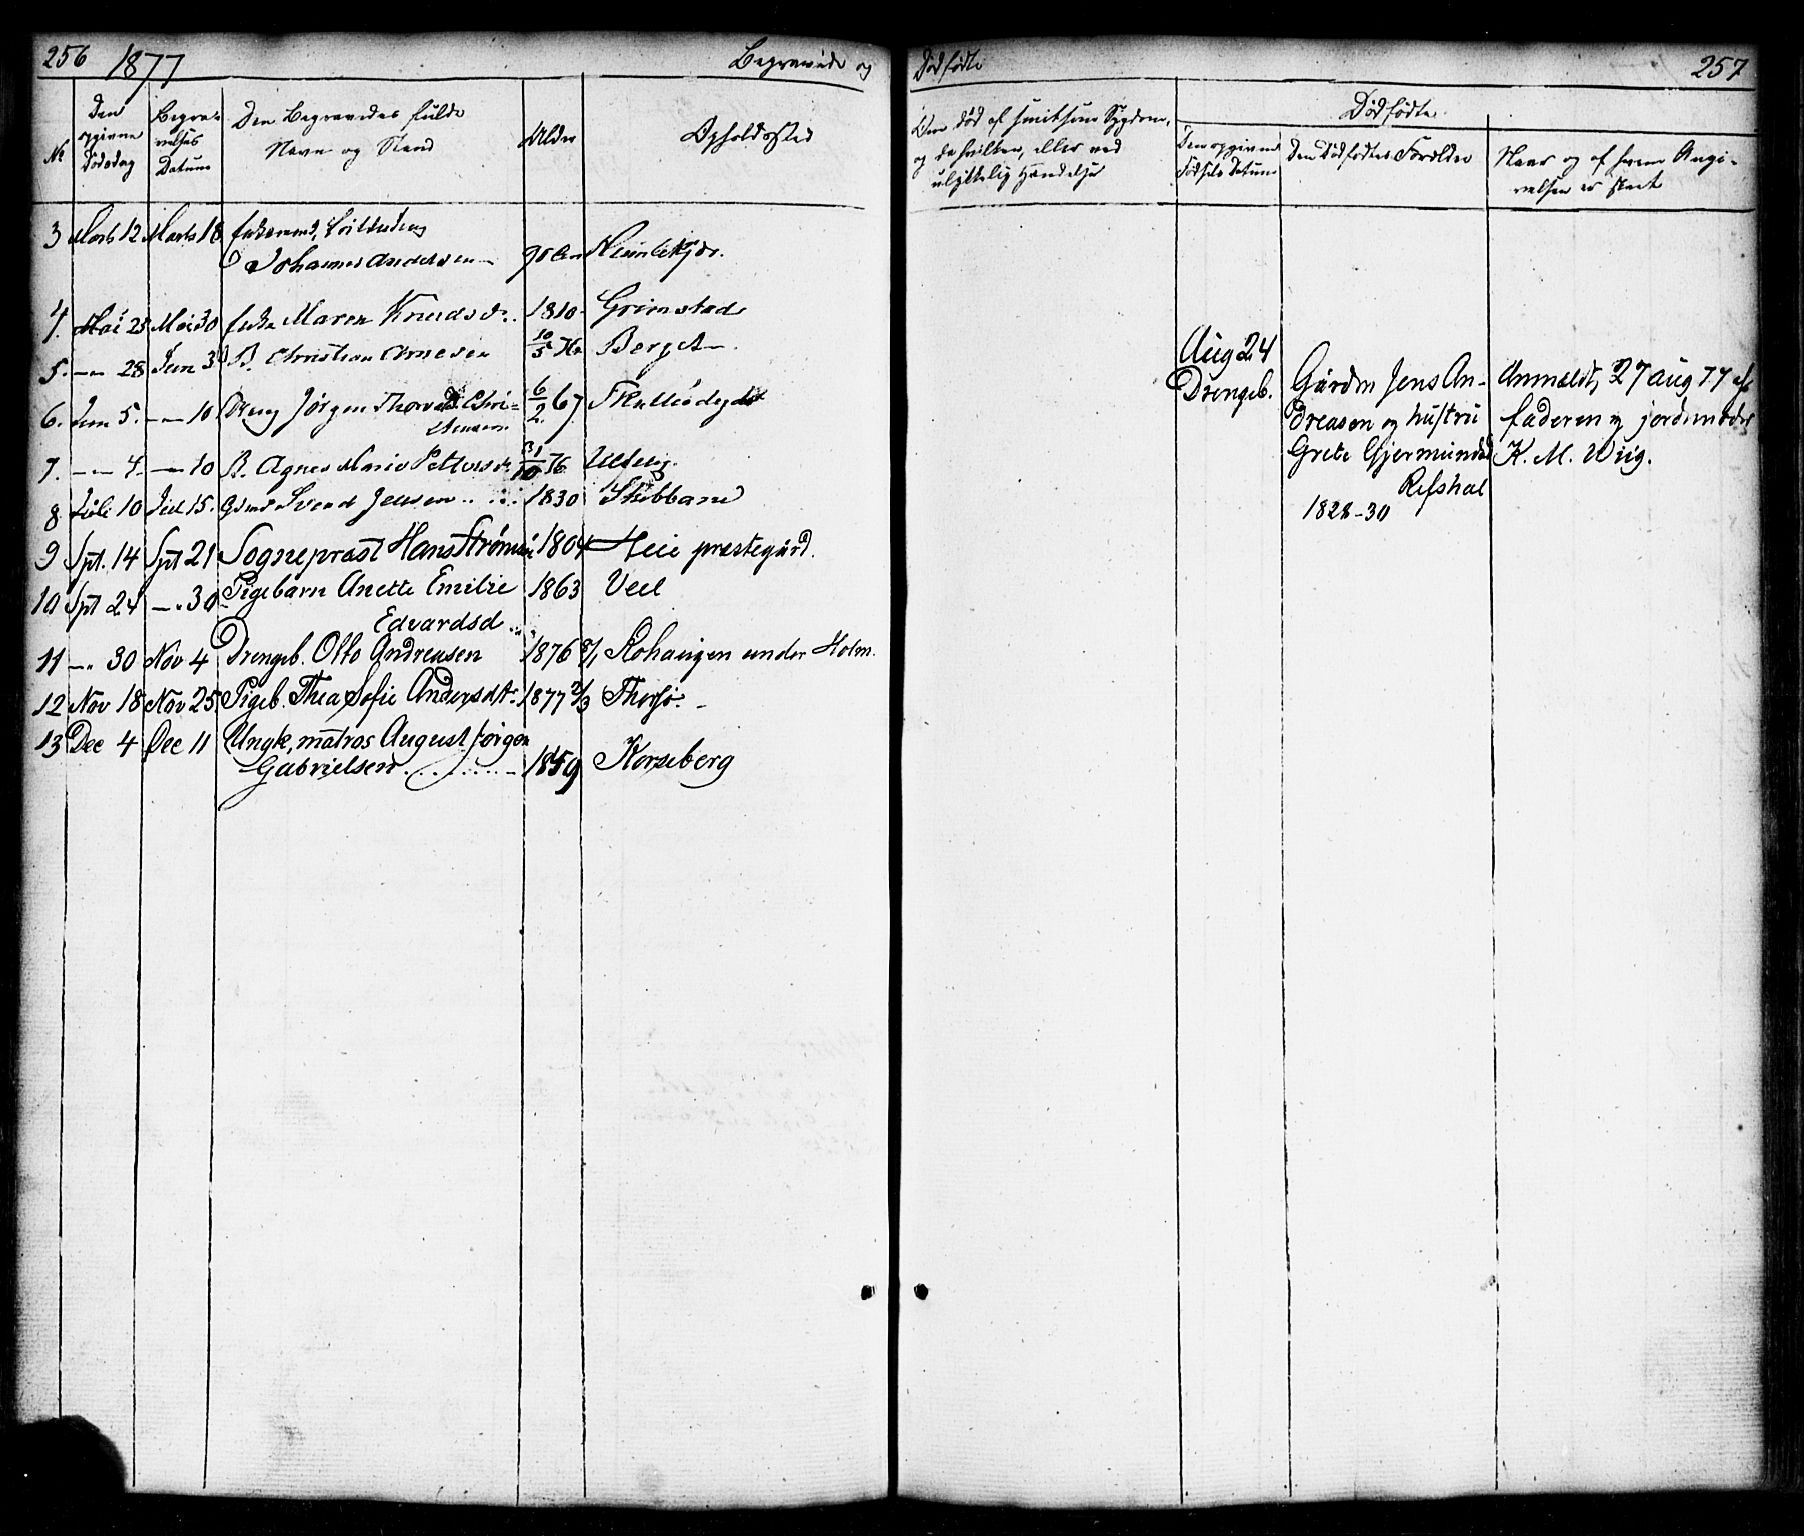 256 1877 Begravede og
No
Den opgivne Dødsdag
Begravelses Datum
Den Begravedes fulde
Navn og Stand
Alder
Opholdssted
3 Marts 12 Marts 18 Enkemand,
Johannes Andersen 90 Aar
4. Mai 25 Mai 30 Enke Maren Knudsd. 1810 Grimstad
5. -"- 28 Jun 3 B. Christian Arnesen 10/5 76 Berget
6. Jun 5. -"- 10 Dreng Jørgen Thorvald Chri-
stensen 6/2 67
7. -"- 4. -"- 10 B. Agnes Marie Pettersd. 31/10 76
8 Juli 10 Jul 15. Gdmd Svend Jensen 1830 Skibbane
9 Spt. 14 Spt 21 Sognepræst Hans Strøm 1804 Heie præstegård.
10 Spt 24 -"- 30 Pigebarn Anette Emilie 1863 Veel
Edvardsd.
11 -"- 30 Nov 4 Drengeb. Otto Andreasen 1876 Rohaugen under Holm.
12 Nov 18 Nov 25 Pigeb. Thea Sofie Andersdtr 1877 2/3
13 Dec 4 Dec 11 Ungk, matros August Jørgen
Gabrielsen 1859 Korseberg
Dødfødte 257
Om død af smitsom Sygdom,
og da hvilken, eller ved
ulykkelig Hændelse
Dødfødte.
Den opgivne
Fødsels Datum
Den Dødfødtes Forældre
Naar og af hvem Angi-
velsen er skeet
Aug 24
Drengeb.
Gårdm Jens An-
dreasen og hustru
Grete Gjermundsd
Refshal
1828-30
Anmeldt, 27 aug 77 af
faderen og jordmoder
K. M. Wiig.